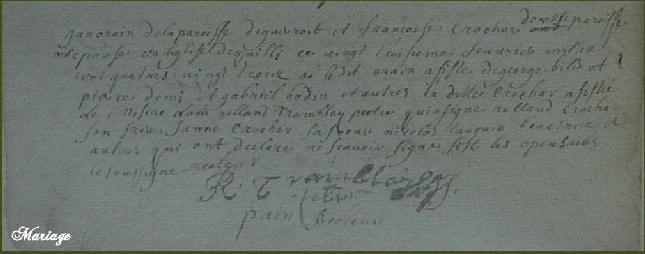 Jan orain de la paroisse de guevroit et francoise Crochar de cette paroisse
ont epousé en leglise de quilli ce vingt troisieme feuvrier mil six
cent quatres vingt treize le dit orain asisté de george bili et
piere deni et gabriel bodin et autres la ditte Crochar asistée
de Misire dom rolland Tramblay pretre qui a signe rolland Crochar
son frere Janne Crochar sa seur nicolas
autres qui ont declaré ne scauoir signe les epousailles
le soussigne recteur
R: Tramblay
pretre
pain Recteur
Mariage